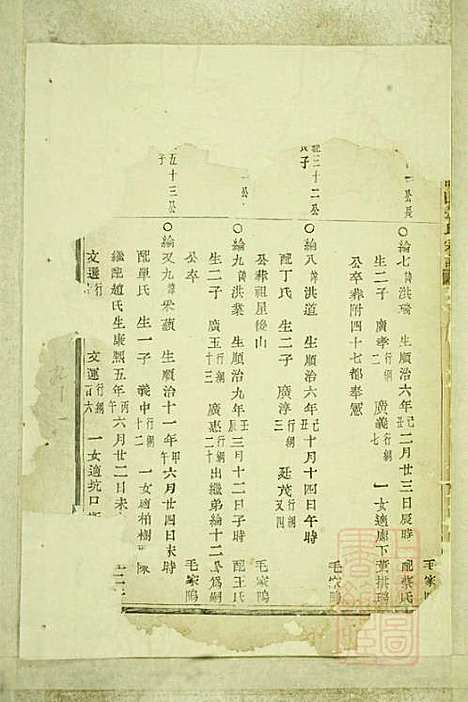 一公長
○綸七諱洪瑞 生順治六年己丑二月廿三日辰時 配柴氏
生二子 廣孝行綱二 廣義行綱七 一女適廊下黃
公卒葬附四十七都奉憲 毛家塢
配三十二公
氏子
○綸八諱洪道 生順治六年己丑十月十四日午時
配丁氏 生二子 廣淳行綱三 廷茂行綱又四
公葬祖星後山 毛家塢
一公
○綸九諱洪業 生順治九年壬三月十二日子時 配王氏
生二子 廣玉行綱十三 廣惠行綱二十 出繼弟綸十二公為嗣
公卒 毛家塢
五十三公
子
○綸又九諱 生順治十一年甲午六月廿四日未時
配單氏 生一子 義中行綱十二 一女適柏樹
繼配趙氏生康熙五年丙午六月廿二日未
文選行綱 文運行綱六 一女適坑口